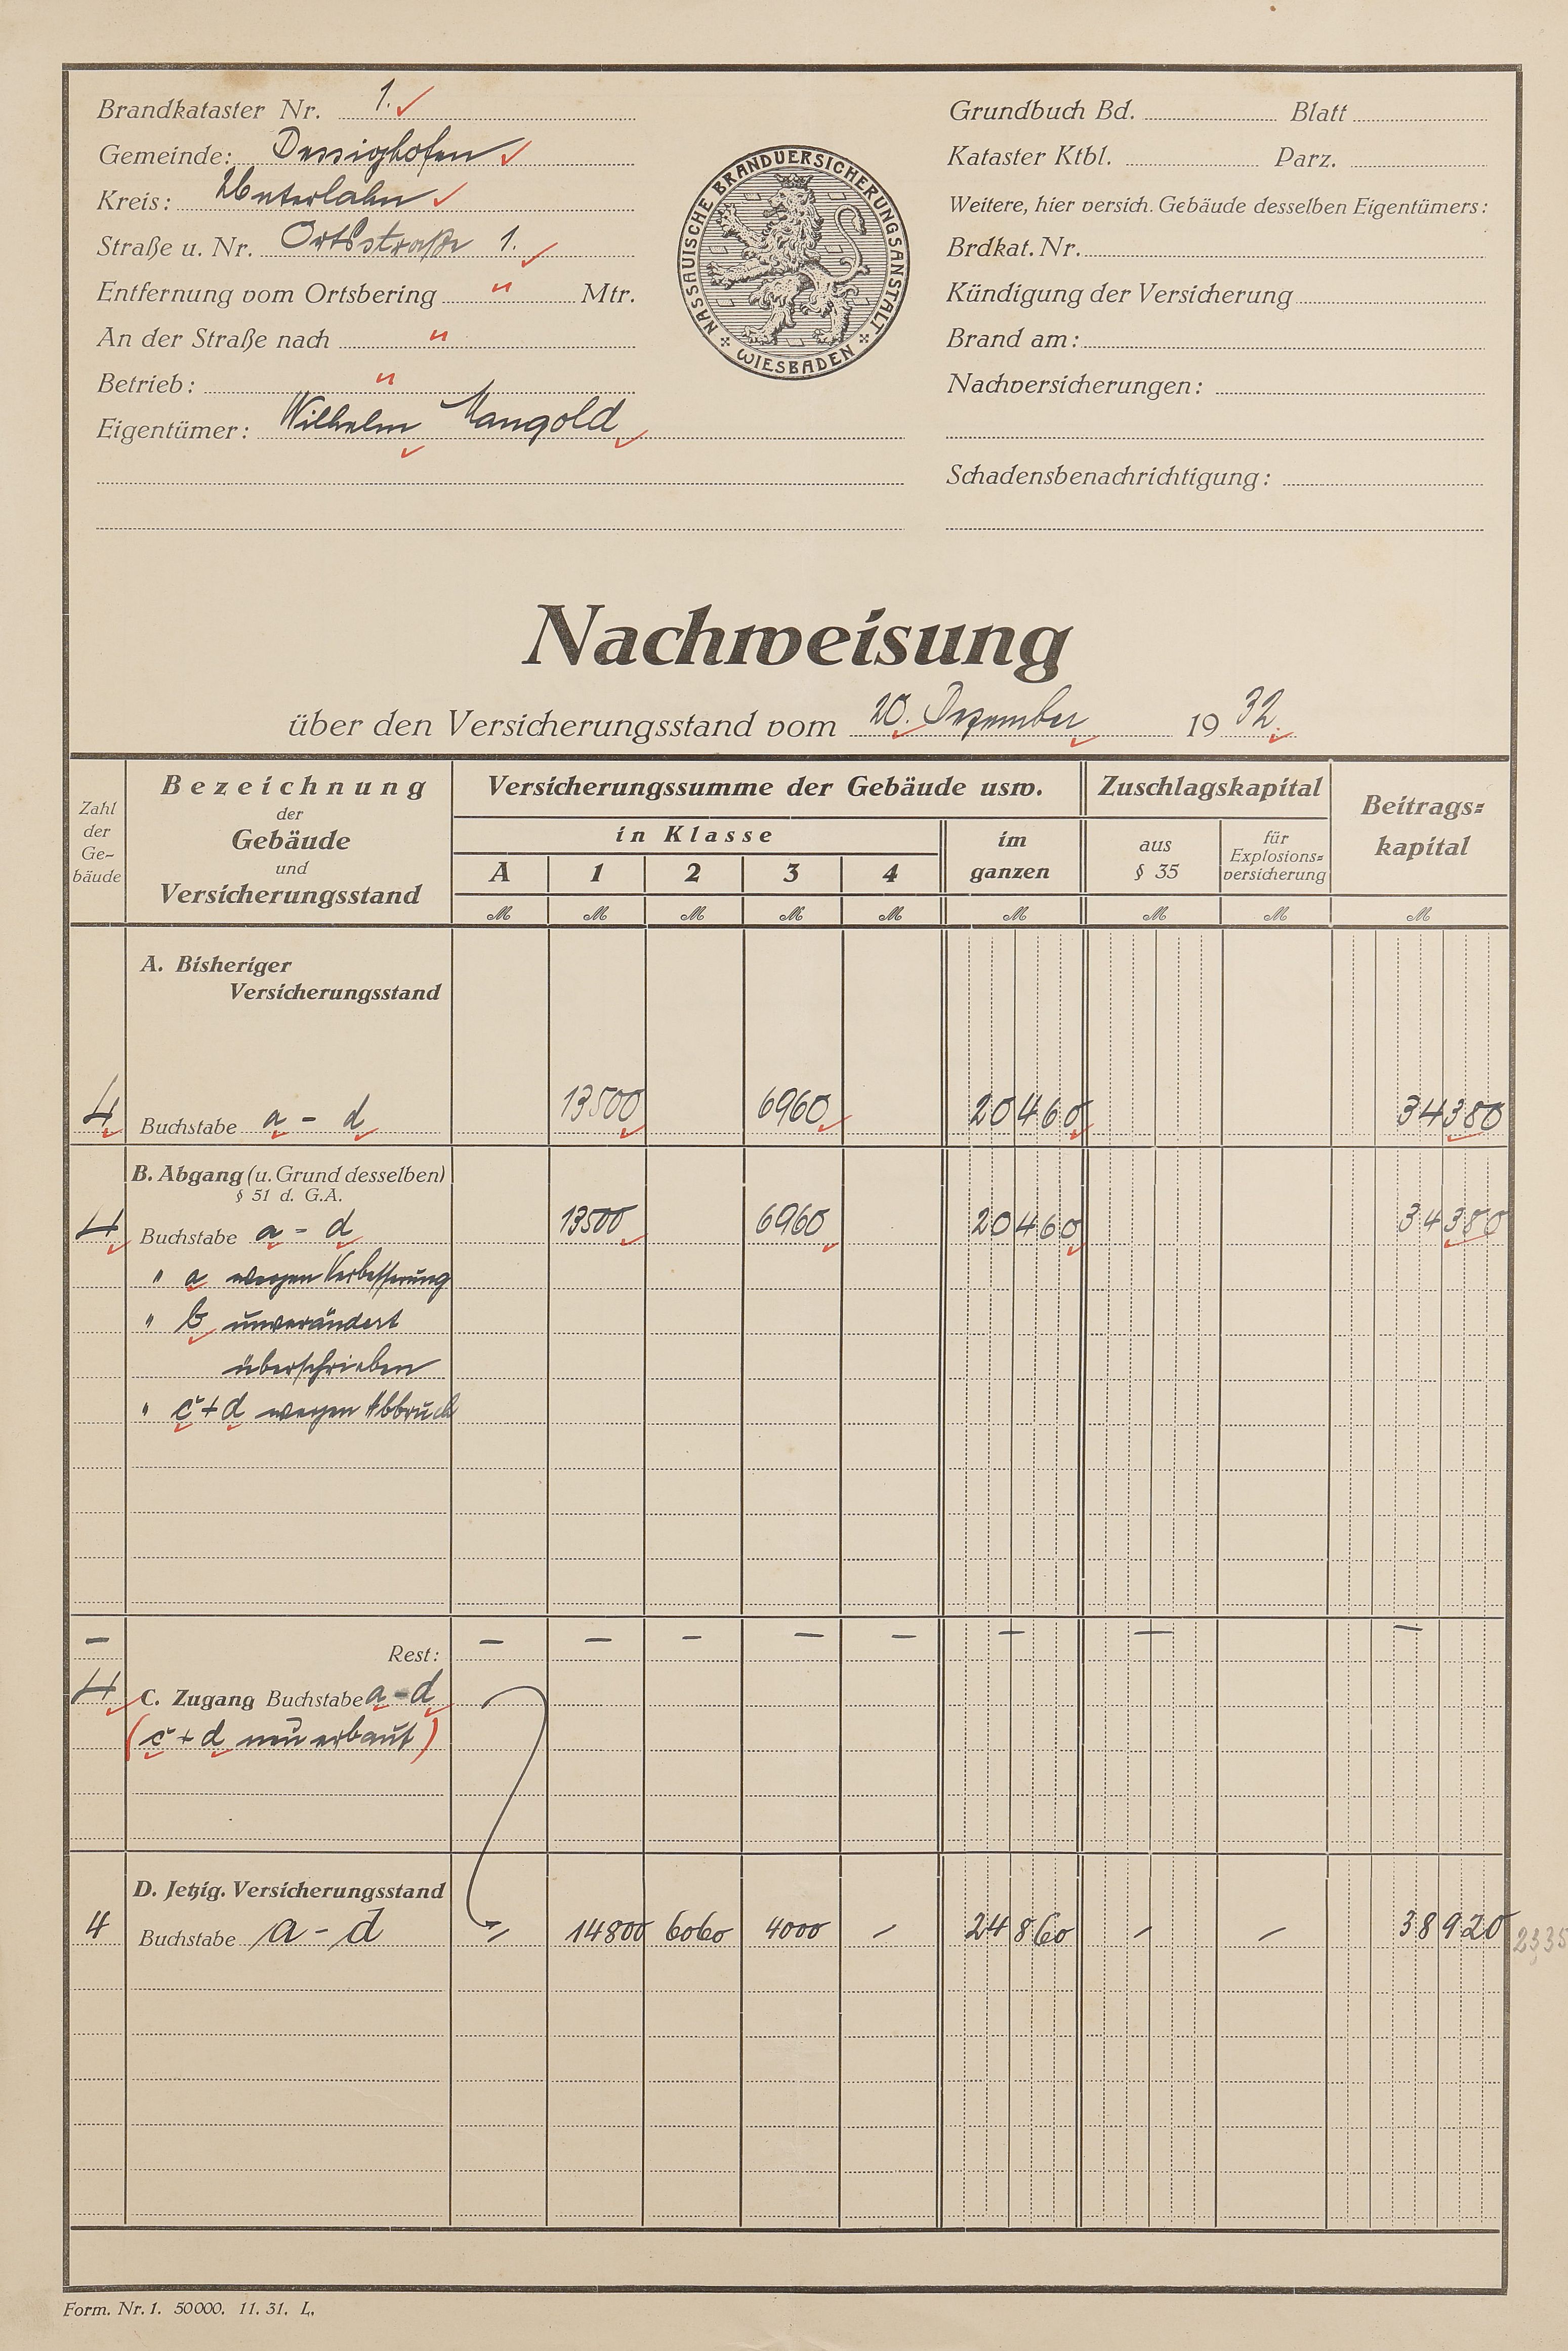 Brandkataster Nr. 1.
Gemeinde: Dessighofen
Kreis: Unterlahn
Straße u. Nr. Ortsstraße 1.
Entfernung vom Ortsbering " Mtr.
An der Straße nach "
Betrieb: "
Eigentümer: Wilhelm Mangold
NASSAUISCHE BRANDVERSICHERUNGSANSTALT
WIESBADEN
Grundbuch Bd. Blatt
Kataster Ktbl. Parz.
Weitere, hier versich. Gebäude desselben Eigentümers:
Brdkat. Nr.
Kündigung der Versicherung
Brand am:
Nachversicherungen:
Schadensbenachrichtigung:
Nachweisung
über den Versicherungsstand vom 20. Dezember 1932.
Zahl der Ge-bäude
Bezeichnung
der
Gebäude
und
Versicherungsstand
Versicherungssumme der Gebäude usw.
in Klasse
A 1 2 3 4
im ganzen
Zuschlagskapital
aus § 35
für Explosions=versicherung
Beitrags=kapital
M M M M M M M M M
A. Bisheriger
Versicherungsstand
4 Buchstabe a - d 13500 6960 20460 34380
B. Abgang (u. Grund desselben)
§ 51 d. G.A.
4 Buchstabe a - d 13500 6960 20460 34380
" a wegen Verbesserung
" b unverändert
überschrieben
" c + d wegen Abbruch
– Rest: – – – – – – – –
4 C. Zugang Buchstabe a - d
(c + d neu erbaut)
D. Jetzig. Versicherungsstand
4 Buchstabe a - d – 14800 6060 4000 – 24860 – – 38920 2335
Form. Nr. 1. 50000. 11. 31. L.